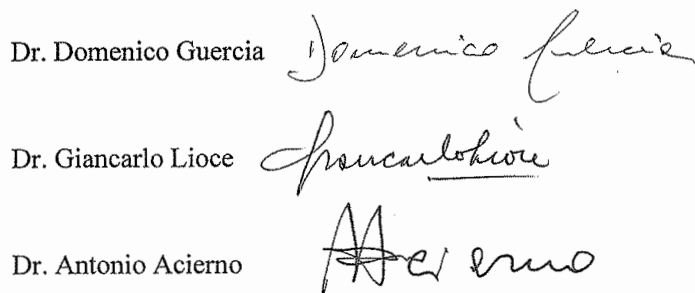 Dr. Domenico Guercia Domenico Guercia
Dr. Giancarlo Lioce Giancarlo Lioce
Dr. Antonio Acierno AAcierno